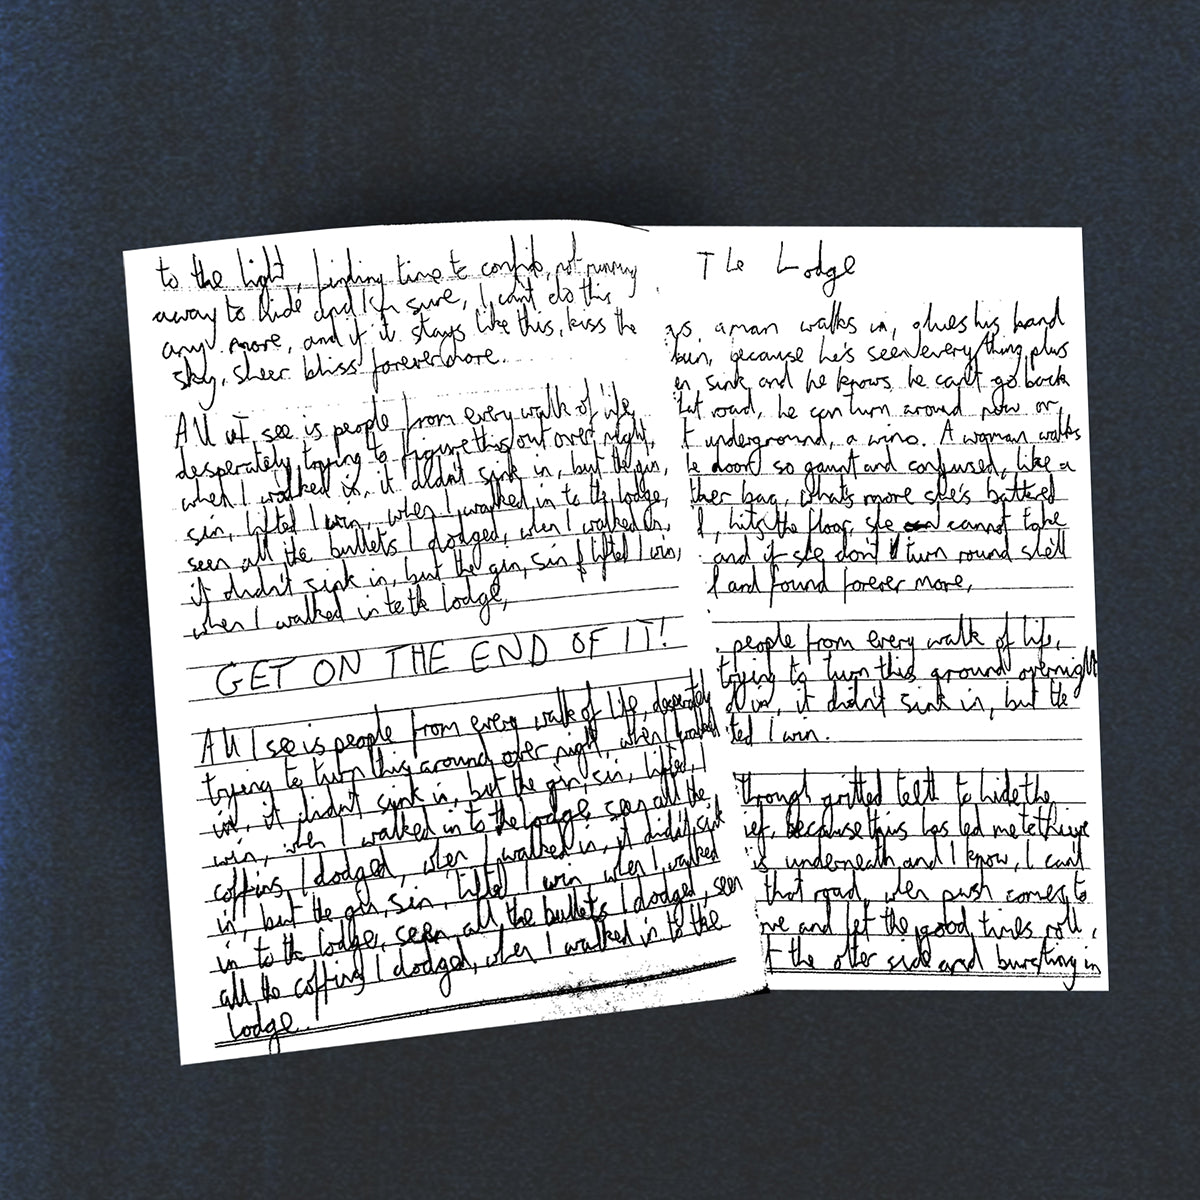 The Lodge
a man walks in, glues his hand
because he's seen everything plus
sink and he knows he can't go back
that road, he can turn around now or
underground, a wino. A woman walks
door so gaunt and confused, like a
bag, what's more she's battered
hits the floor, she cannot take
and if she don't turn round she'll
and found forever more,
people from every walk of life,
trying to turn this around overnight
in, it didn't sink in, but the
I win.
through gritted teeth to hide the
because this has led me to
is underneath and I know, I can't
that road when push comes to
and let the good times roll,
the other side and bursting in
to the light, finding time to confide, not running
away to hide and I'm sure, I can't do this
any more, and if it stays like this, kiss the
sky, sheer bliss forevermore.
All I see is people from every walk of life,
desperately trying to figure this out over night,
when I walked in, it didn't sink in, but the gin,
sin, lifted I win, when I walked in to the lodge,
seen all the bullets I dodged, when I walked in,
it didn't sink in, but the gin, sin & lifted I win,
when I walked in to the lodge,
GET ON THE END OF IT!
All I see is people from every walk of life, desperately
trying to turn this around over night, when I walked
in, it didn't sink in, but the gin, sin, lifted, I
win, when I walked in to the lodge seen all the
coffins I dodged, when I walked in, it didn't sink
in, but the gin, sin, lifted I win when I walked
in to the lodge, seen all the bullets I dodged, seen
all the coffins I dodged, when I walked in to the
lodge.